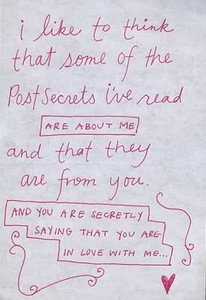 i like to think
that some of the
PostSecrets i've read
ARE ABOUT ME
and that they
are from you.
AND YOU ARE SECRETLY
SAYING THAT YOU ARE
IN LOVE WITH ME...